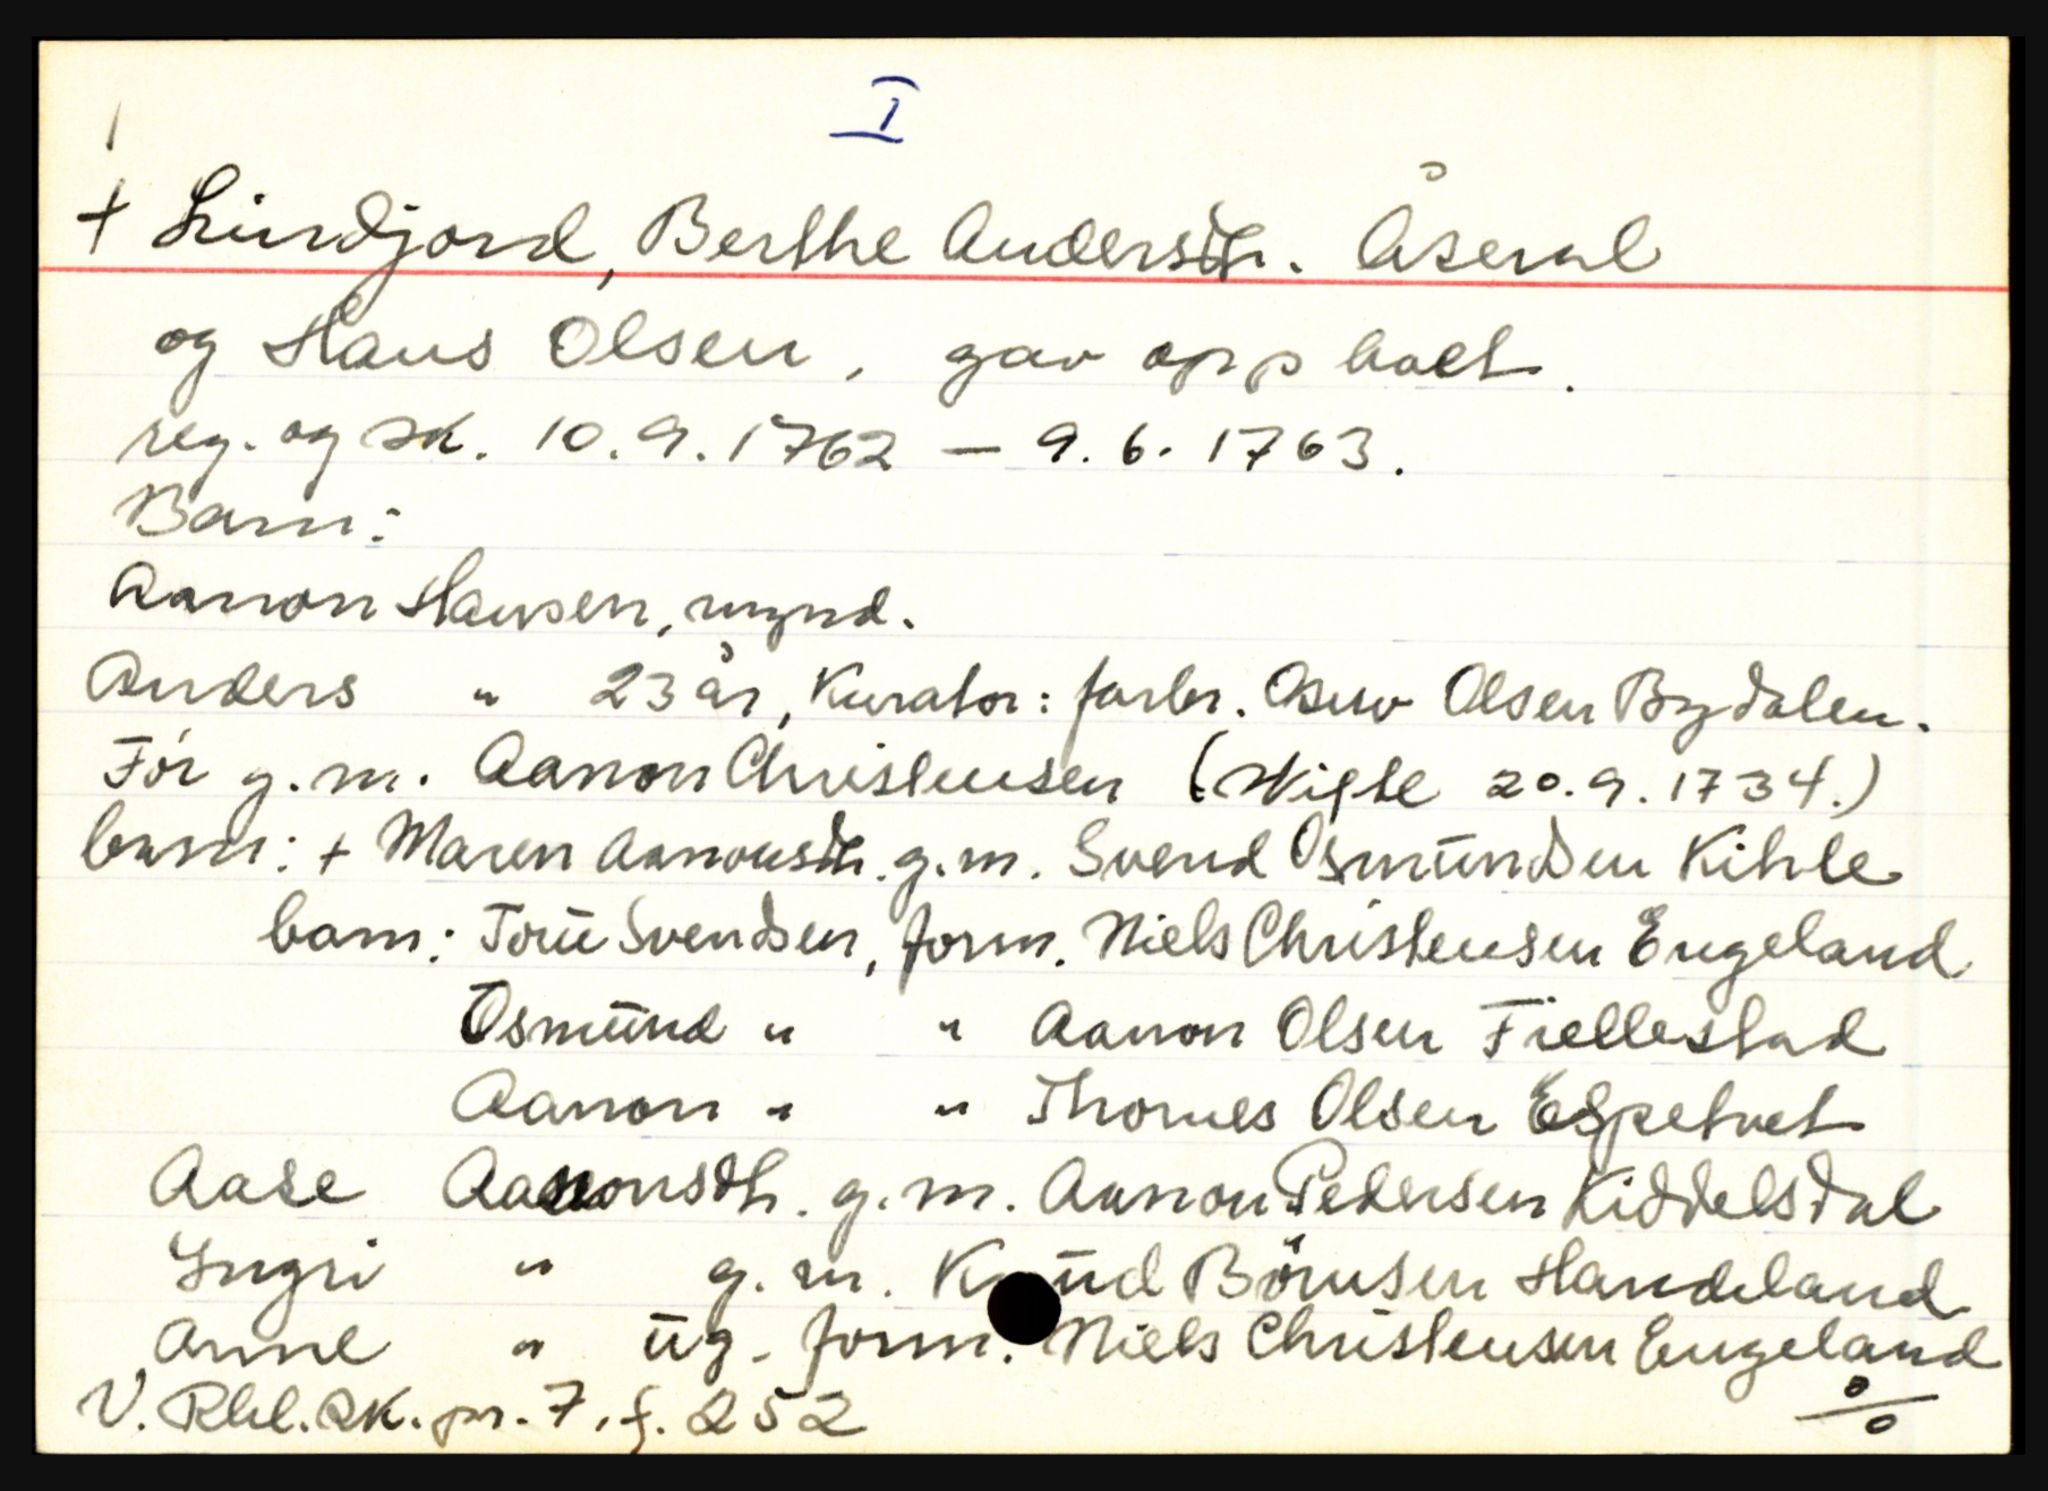 I
+ Lindjord, Berthe Andersdtr. Åseral
og Hans Olsen, gav opp boet.
reg. og sk. 10.9.1762 – 9.6.1763.
Barn:
Aanon Hansen, mynd.
Anders " 23 år, Kurator: farbr. Osuv Olsen Bydalen.
Før g.m. Aanon Christensen (skifte 20.9.1734.)
barn: + Maren Aanonsdtr. g.m. Svend Osmundsen Kihle
barn: Torü Svendsen, form. Niels Christensen Engeland
Osmünd " " Aanon Olsen Fiellestad
Aanon " " Thomes Olsen Espetvet
Aase Aanonsdtr. g.m. Aanon Pedersen Kiddelsdal
Ingri " g.m. Knüd Börusen Handeland
Anne " üg. form. Niels Christensen Engeland
V. Rbl. sk. pr. 7, f. 252 o/o